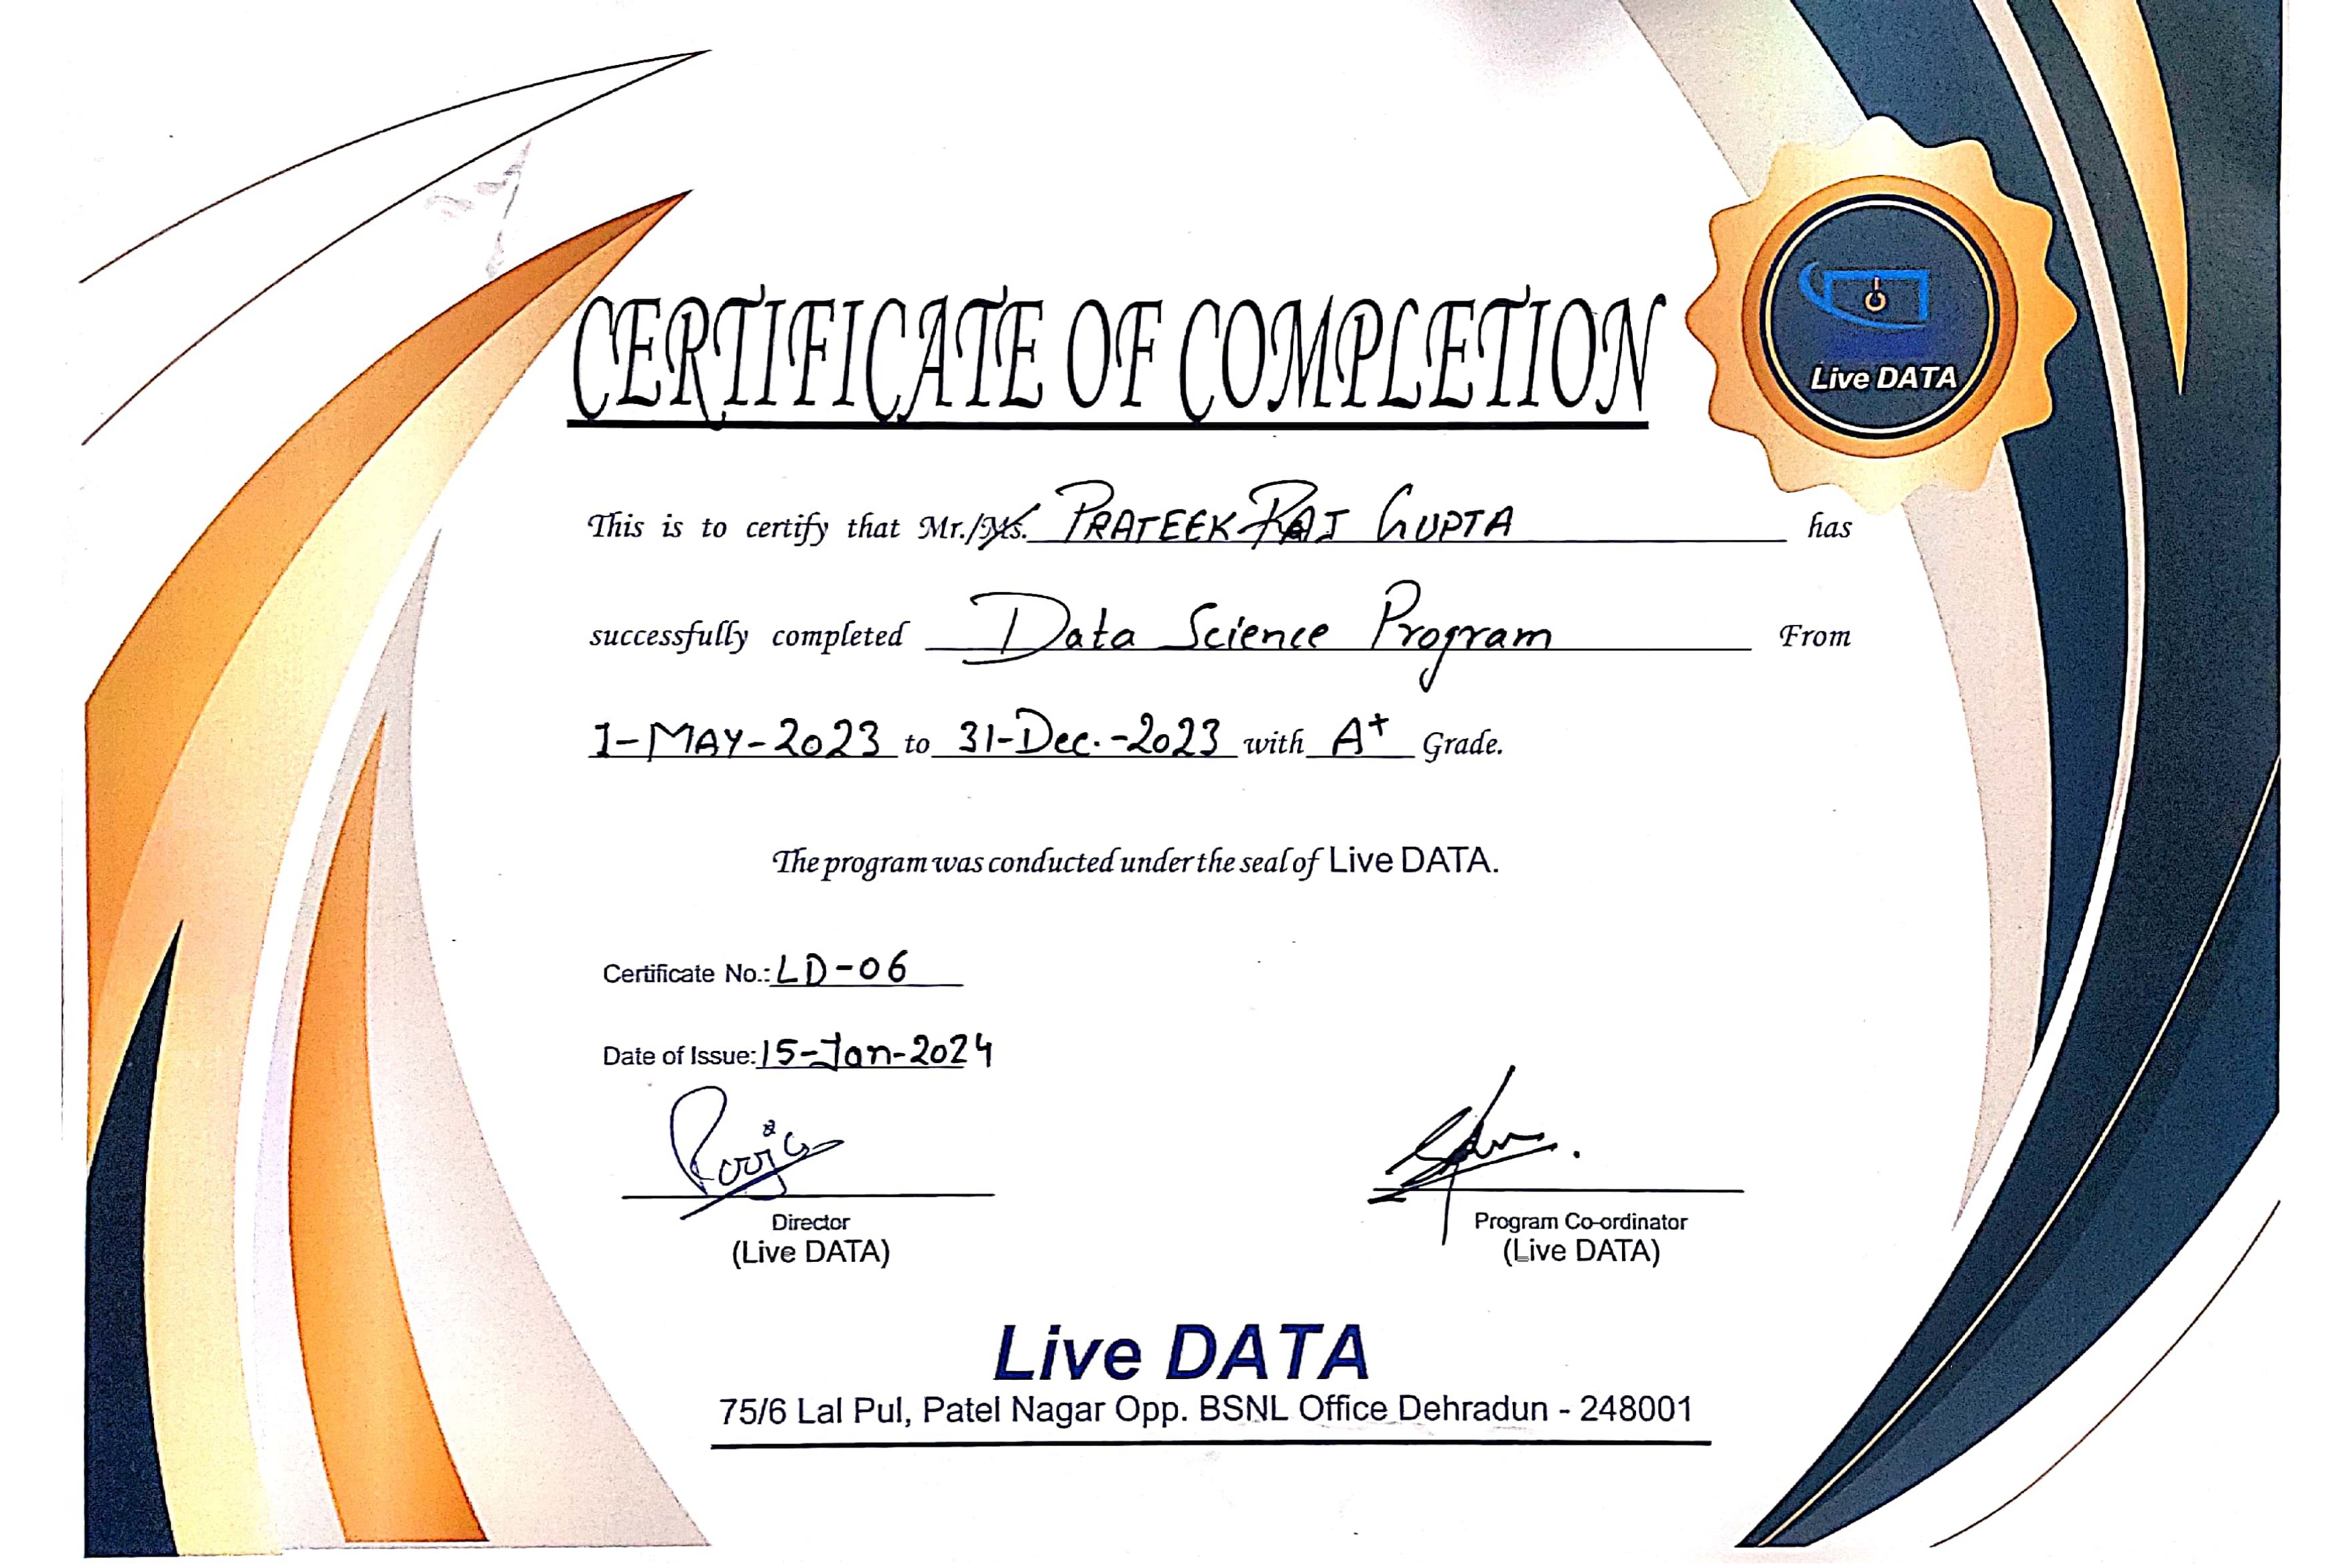 CERTIFICATE OF COMPLETION
Live DATA
This is to certify that Mr./Ms. PRATEEK RAJ GUPTA has
successfully completed Data Science Program From
1-MAY-2023 to 31-Dec.-2023 with A+ Grade.
The program was conducted under the seal of Live DATA.
Certificate No.: LD-06
Date of Issue: 15-Jan-2024
Pooja
Director
(Live DATA)
Program Co-ordinator
(Live DATA)
Live DATA
75/6 Lal Pul, Patel Nagar Opp. BSNL Office Dehradun - 248001